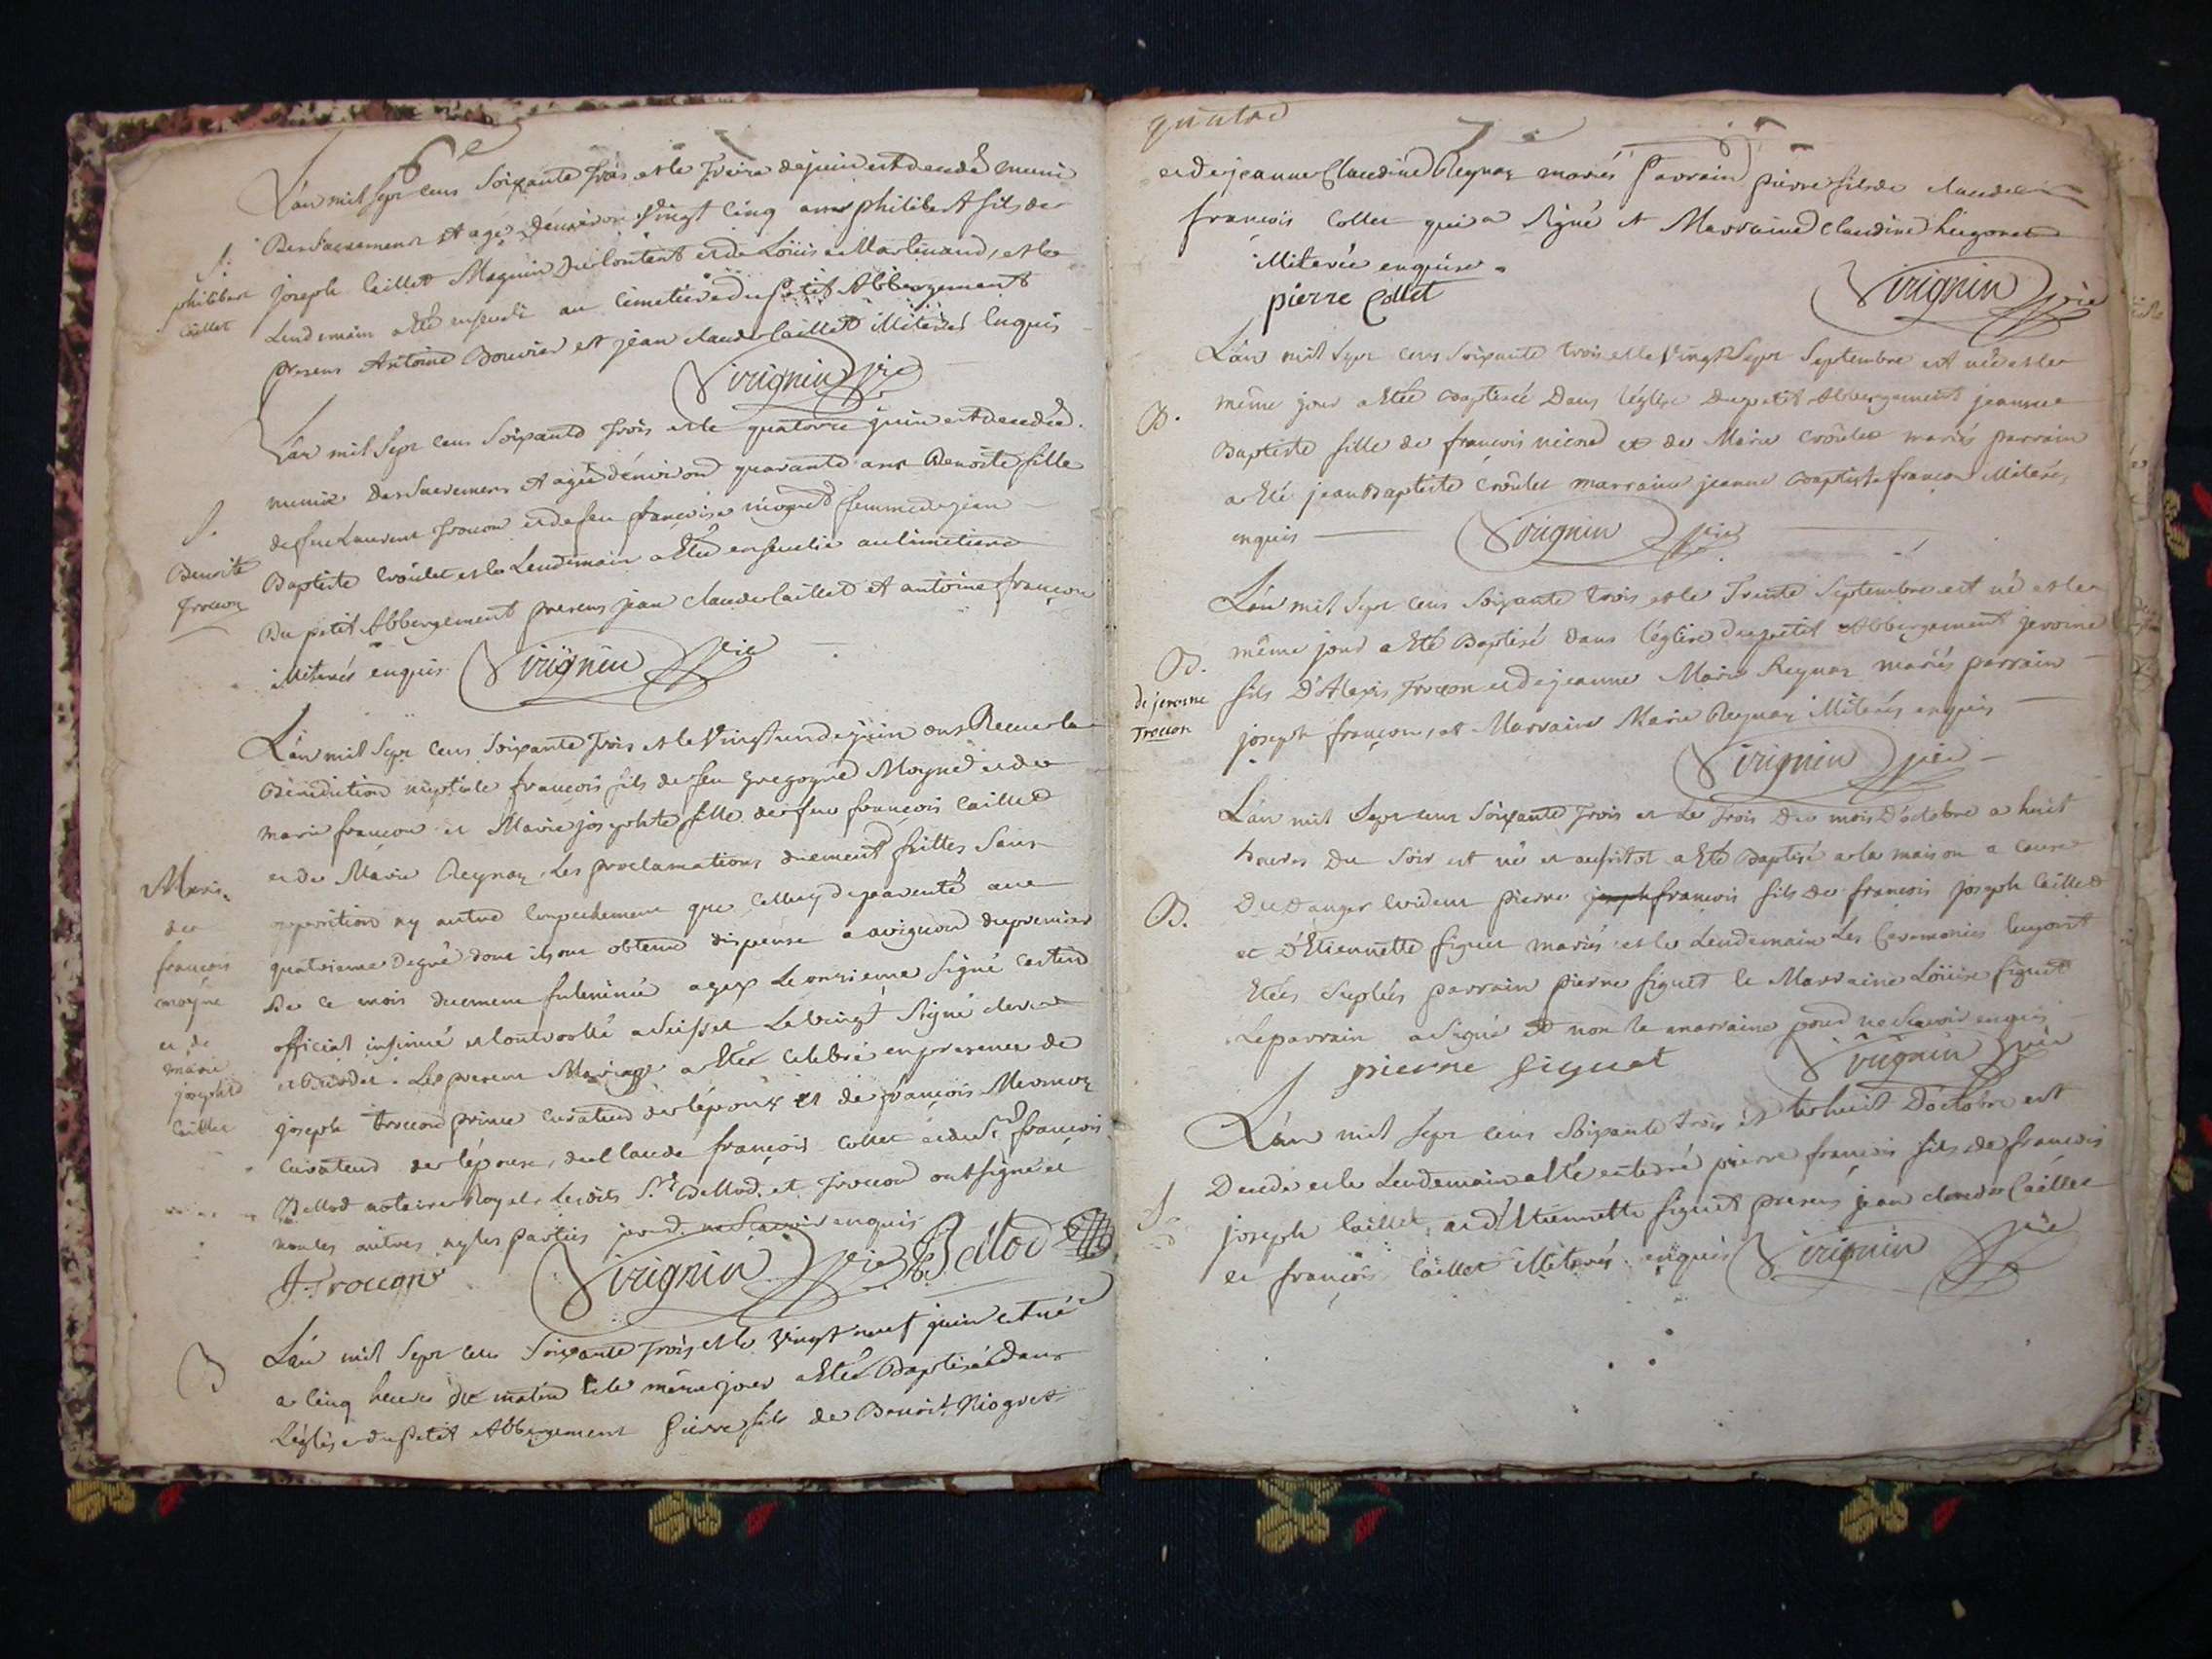 6e
L'an mil sept cens soixante trois et le treize de juin est decedé muni
S. Des Sacremens et agé d'environ vingt cinq ans philibert fils de
philibert joseph Caillet Magnin du Content et de Loüise Martinand, et le
Caillet Lendemain a été enseveli au Cimetiere du Petit Abbergement
presens Antoine Bouvier et jean claude Caillet illiterés enquis
Virignin vic
L'an mil sept cens soixante trois et le quatorze juin est decedée
munie des Sacremens et agée d'environ quarante ans Benoite fille
S. de feu Laurent trocon et de feu françoise niogret femme de jean
Benoite Baptiste Croûlet et le Lendemain a été ensevelie au Cimetiere
trocon Du petit Abbergement presens jean claude Caillet et antoine françon
illiterés enquis Virignin vic
L'an mil sept cens soixante trois et le vingt un de juin ont Recue la
Bénédiction nuptiale françois fils de feu gregoyre Moyne et de
marie françon et Marie josephte fille de feu françois Caillet
et de Marie Reynaz, Les proclamations duement faittes sans
Maria. opposition ny autre Empechement que celluy de parenté au
de quatrieme degré dont ils ont obtenu dispense a avignon du premier
françois De ce mois duement fulminée a gex Le onzieme signé
moyne official insinué et controollé a Seissel Le vingt signé
et de Le present Mariage a été celebré en presence de
marie joseph trocon prince curateur de l'époux et de françois
josephte curateur de l'épouse, de Claude françois Collet et du Sr françois
Caillet Bellod notaire Royal. Lesdits Srs Bellod et trocon ont signé et
non les autres ny les parties pour ne Scavoir enquis
J. Trocon Virignin vic Bellod
B L'an mil sept cens soixante trois et le vingt neuf juin est né
a cinq heures du matin et le même jour a été Baptisé dans
L'église du Petit Abbergement Pierre fils de Benoit Niogret
quatre
7e
et de jeanne Claudine Reynaz mariés Parrain pierre fils de claude
françois Collet qui a signé et Marraine claudine hugonet
illiterée enquise.
pierre Collet Virignin vic
L'an mil sept cens soixante trois et le vingt sept Septembre est née et le
B. même jour a été baptisée Dans l'église du petit Abbergement jeanne
Baptiste fille de françois et de Marie Croûlet mariés parrain
a été jean Baptiste Croûlet marraine jeanne Baptiste françon illiterés
enquis Virignin vic
L'an mil sept cens soixante trois et le Trente Septembre est né et le
B. même jour a été Baptisé dans l'église du petit Abbergement jerome
de jerome fils D'Alexis trocon et de jeanne Marie Reynaz mariés parrain
Trocon joseph françon, et Marraine Marie Reynaz illiterés enquis
Virignin vic
L'an mil sept cens soixante trois et Le trois Du mois D'octobre a huit
heures Du Soir est né et aussitot a été Baptisé a la maison a cause
B. Du Danger evident pierre joseph françois fils de françois joseph Caillet
et D'Etiennette figuet mariés et le Lendemain Les Ceremonies luy ont
étées supleés parrain pierre figuet le Marraine Loüise figuet
Le parrain a signé et non la marraine pour ne Scavoir enquis
pierre figuet Virignin vic
L'an mil sept cens soixante trois et le huit D'octobre est
Decedé et le Lendemain a été enterré pierre françois fils de françois
S. joseph Caillet, et d'Etiennette figuet presens jean claude Caillet
et françois Caillet illiterés enquis Virignin vic